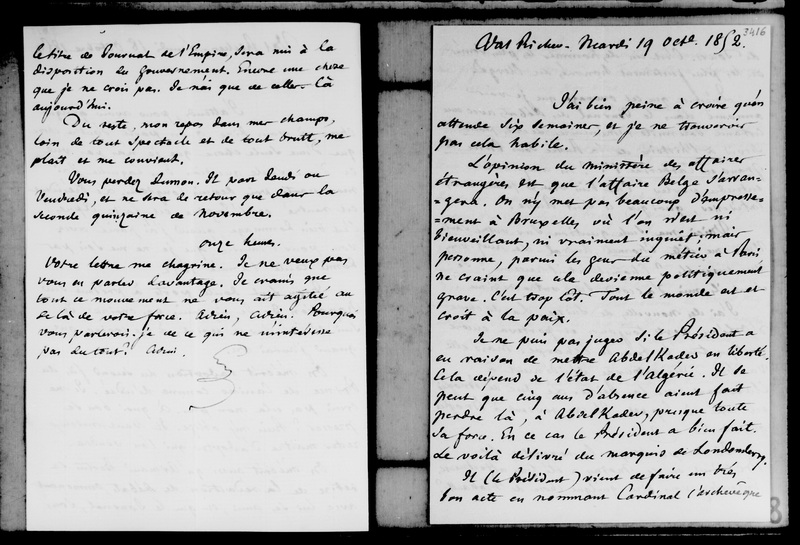 le titre de Journal de l'Empire, sera mis à la
disposition du gouvernement. Encore une chose
que je ne crois pas. Je n'ai que de celles-là
aujourd'hui.
Du reste, mon repos dans mes champs,
loin de tout spectacle et de tout bruit, me
plait et me convient.
Vous perdez Dumon. Il part Jeudi ou
Vendredi, et ne sera de retour que dans la
seconde quinzaine de novembre.
onze heures.
Votre lettre me chagrine. Je ne veux pas
vous en parler davantage. Je crains que
tout ce mouvement ne vous ait agitée au
delà de votre force. Adieu, Adieu. Pourquoi
vous parlerois-je de ce qui ne m'intéresse
pas du tout? Adieu.
3416
Val Richer - Mardi 19 Octe. 1852.
J'ai bien peine à croire qu'on
attende six semaines, et je ne trouverois
pas cela habile.
L'opinion du ministère des affaires
étrangères est que l'affaire Belge s'arran-
=gera. On n'y met pas beaucoup d'empresse-
=ment à Bruxelles où l'on n'est ni
bienveillant, ni vraiment inquiet; mais
personne, parmi les gens du métier à Paris,
ne craint que cela devienne politiquement
grave. C'est trop tôt. Tout le monde est et
croit à la paix.
Je ne puis pas juger si le Président a
eu raison de mettre Abdel Kader en liberté.
Cela dépend de l'état de l'Algérie. Il se
peut que cinq ans d'absence aient fait
perdre là, à Abdel Kader, presque toute
sa force. En ce cas le Président a bien fait.
Le voilà délivré du marquis de Londonderry.
Il (le Président) vient de faire un très
bon acte en nommant Cardinal l'archevêque
8